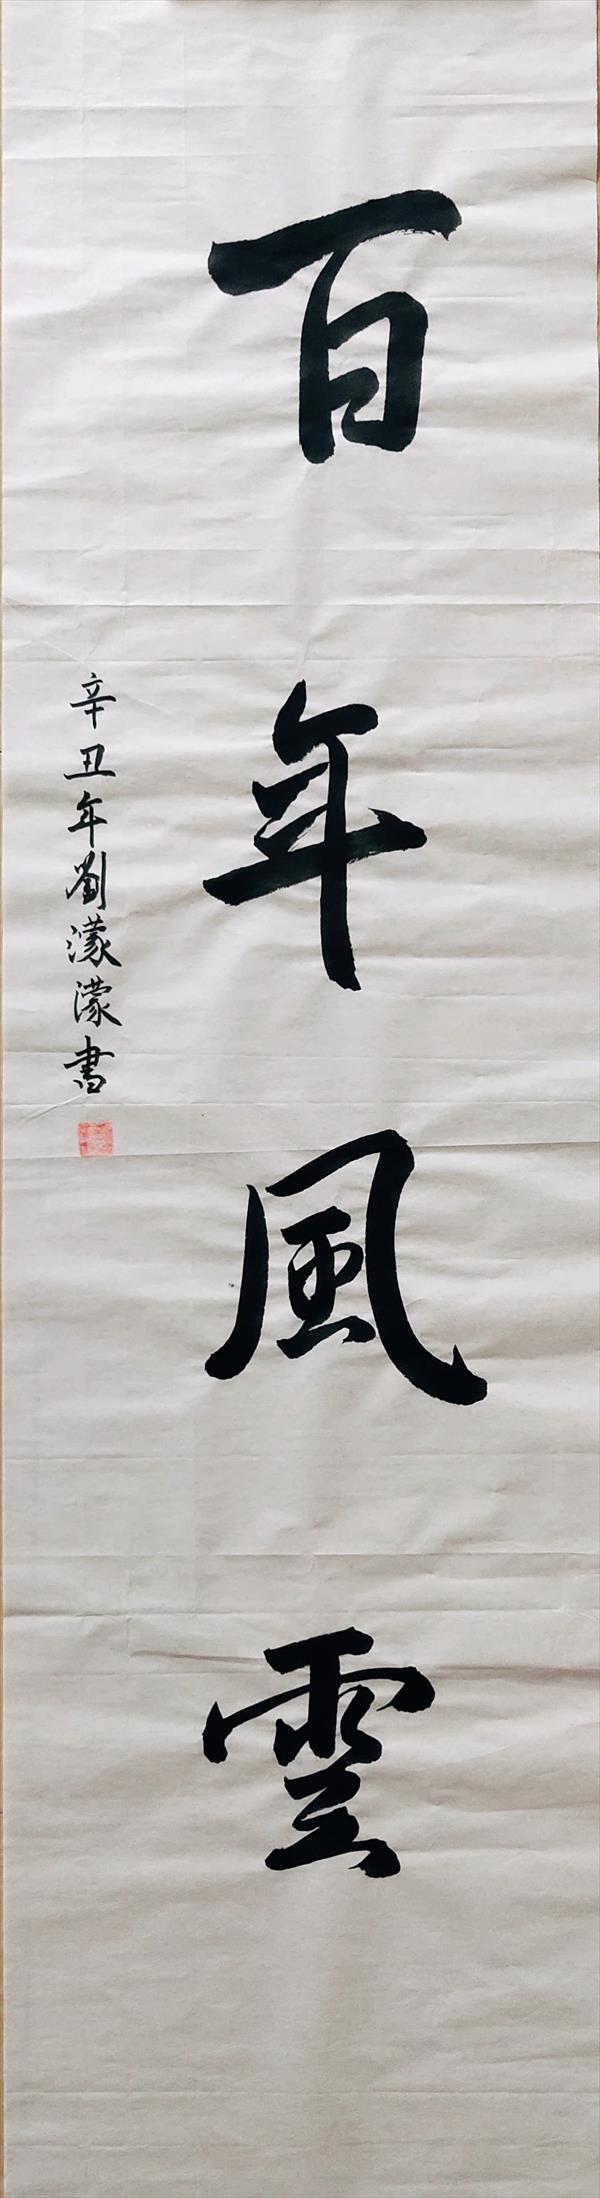 百年風雲
辛丑年劉濛濛書